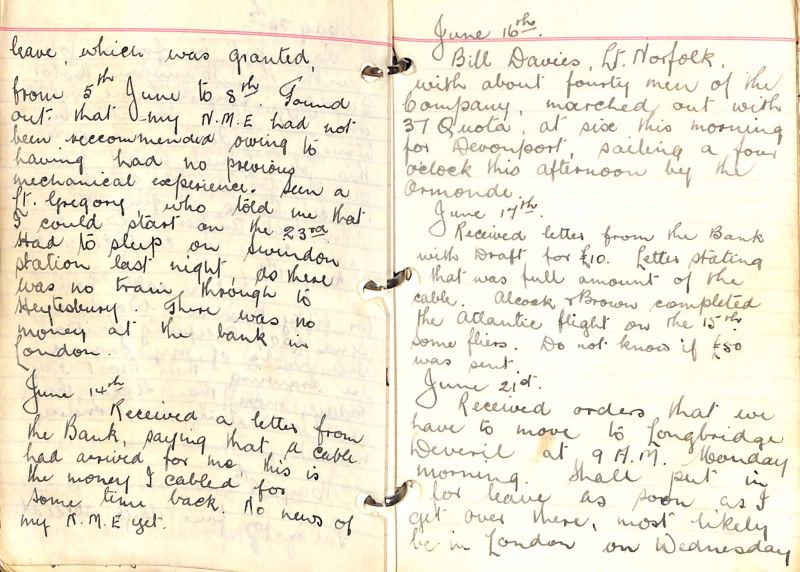 leave, which was granted,
from 5th June to 8th. Found
out that my N.M.E had not
been reccommended owing to
having had no previous
mechanical experience. Seen a
Lt. Gregory, who told me that
I could start on the 23rd.
Had to sleep on Swindon
station last night, as there
was no train through to
Heytesbury. There was no
money at the bank in
London.
June 14th
Received a letter from
the Bank, saying that a cable
had arrived for me, this is
the money I cabled for
some time back. No news of
my N.M.E yet.
June 16th.
Bill Davies, Lt. Norfolk,
with about fourty men of the
Company, marched out with
37 Quota, at six this morning
for Devonport, sailing a four
oclock this afternoon by the
Ormonde.
June 17th.
Received letter from the Bank
with Draft for £10. Letter stating
that was full amount of the
cable. Alcock & Brown completed
the Atlantic flight on the 15th
some fliers. Do not know if £50
was sent.
June 21st.
Received orders that we
have to move to Longbridge
Deveril at 9 A.M. Monday
morning. Shall put in
for leave as soon as I
get over there, most likely
be in London on Wednesday